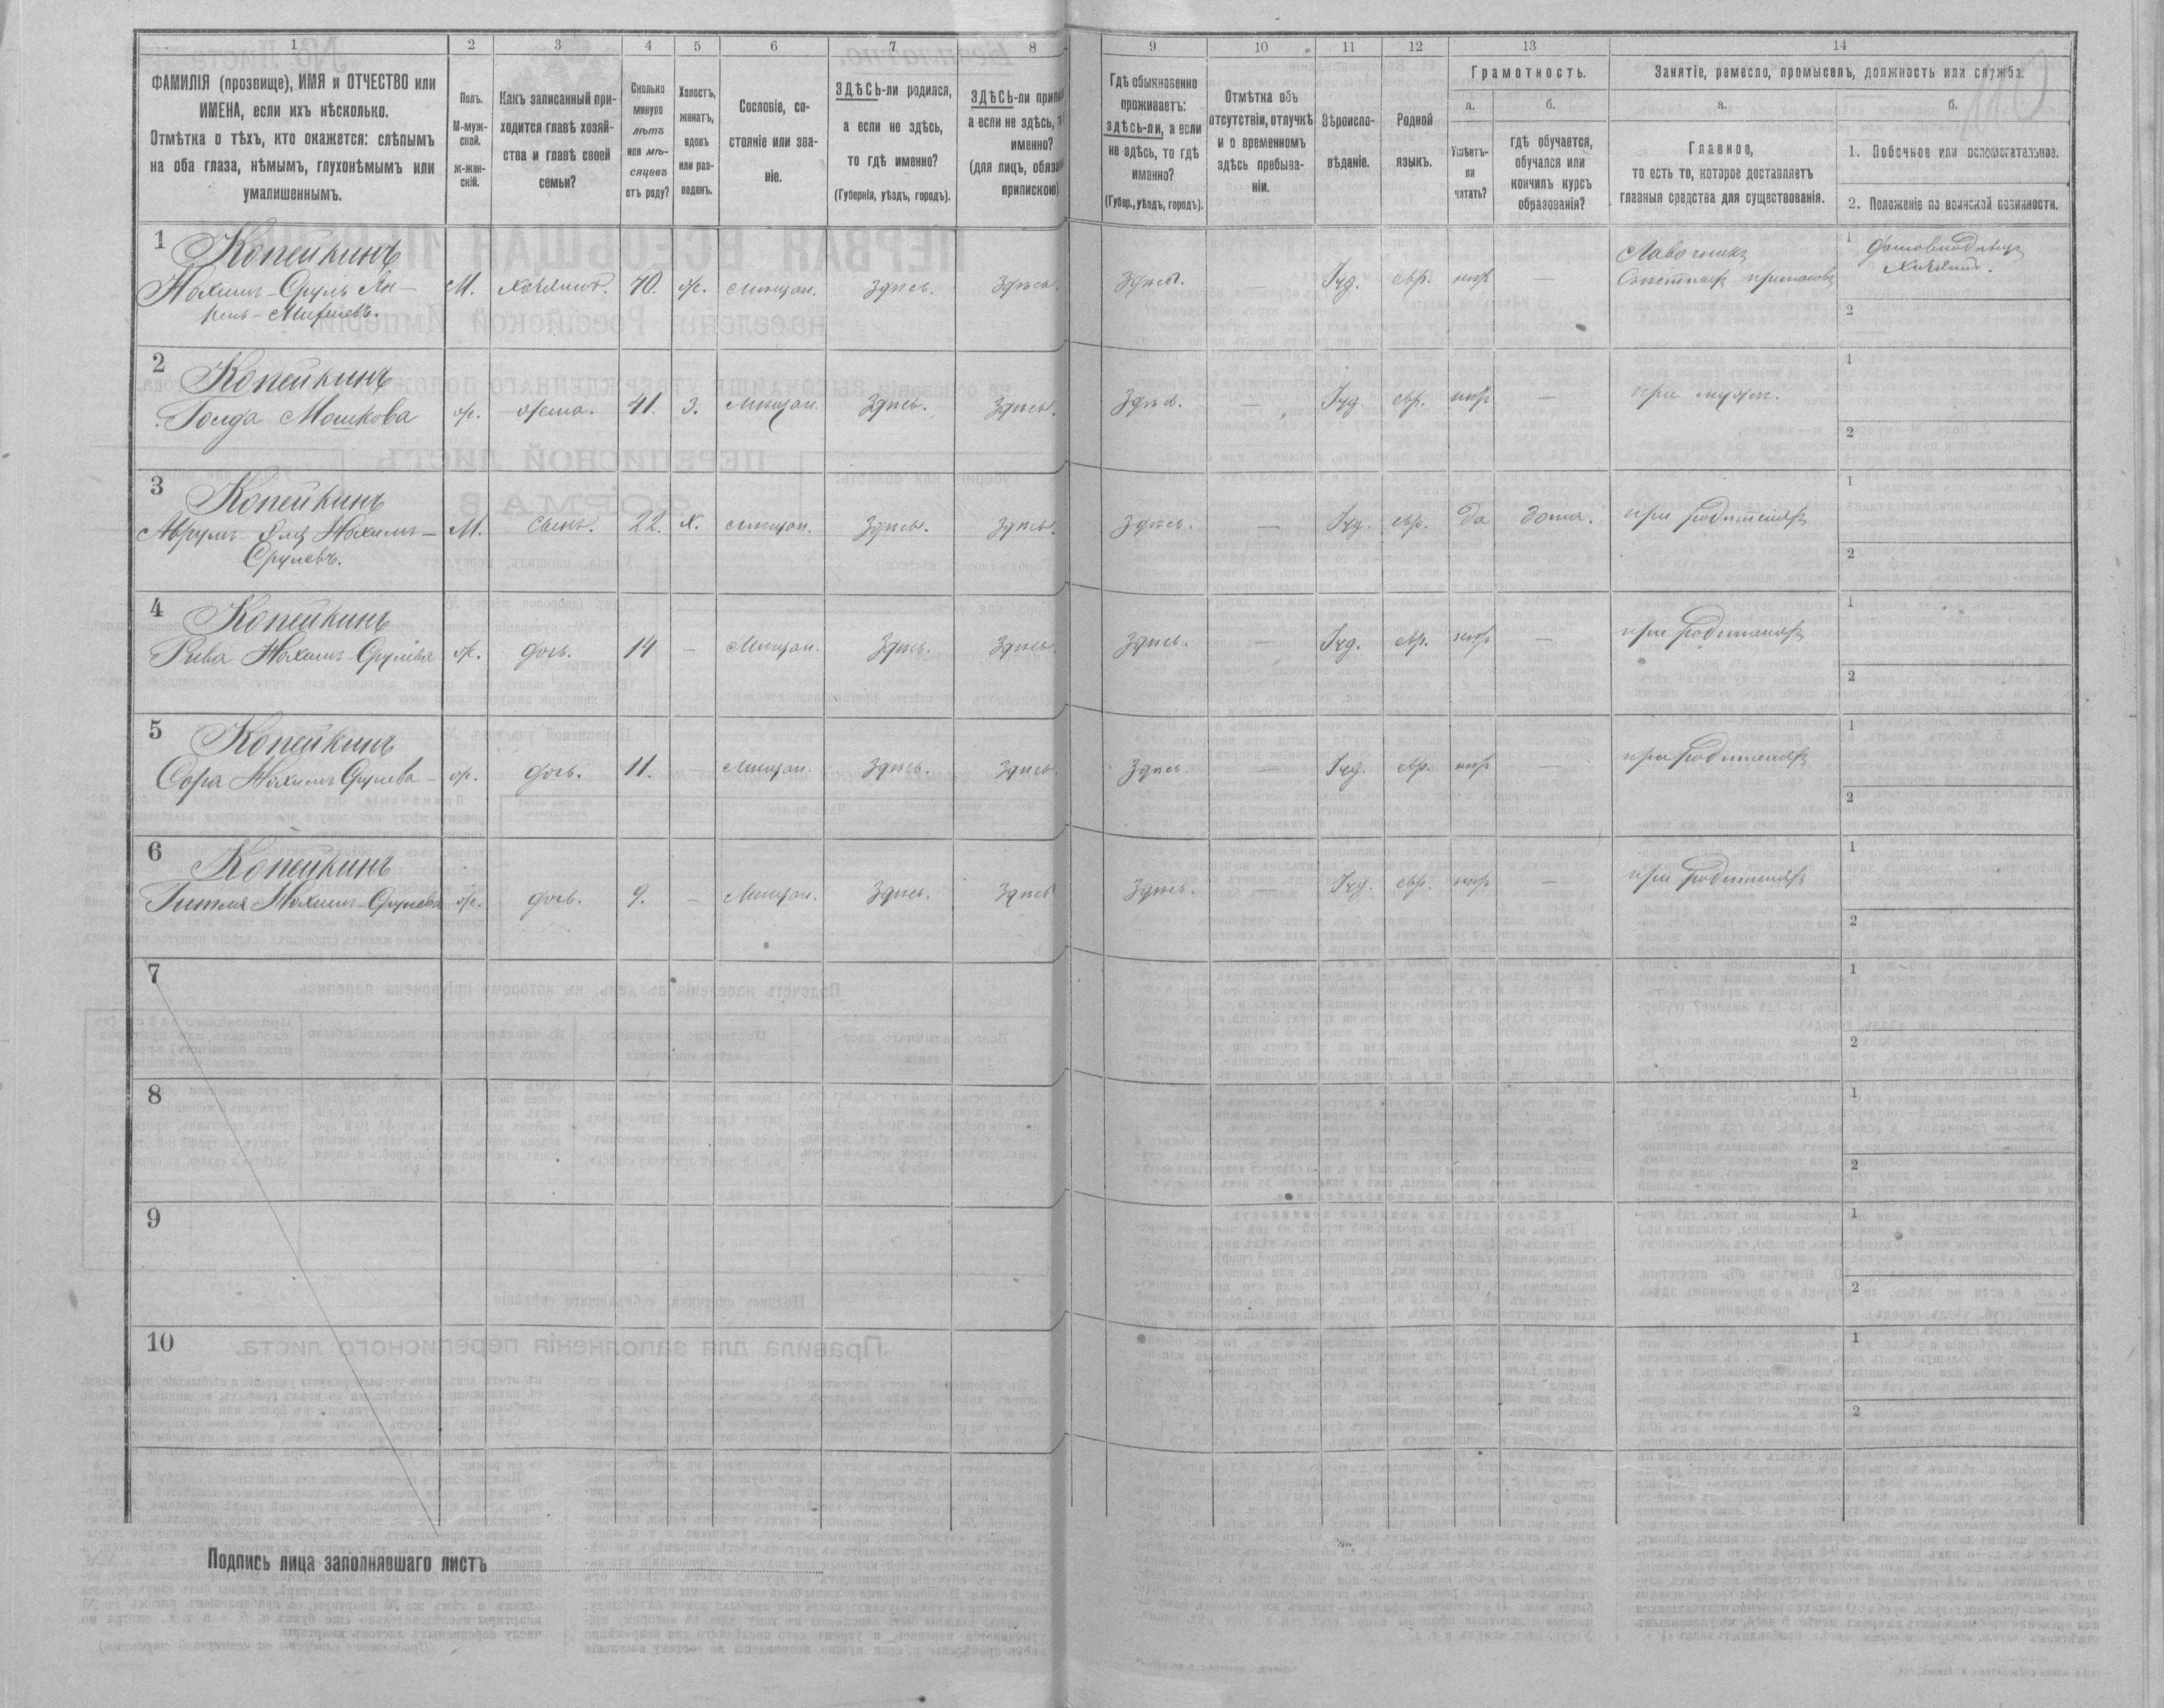 1 2 3 4 5 6 7 8 9 10 11 12 13 14
ФАМИЛІЯ (прозвище), ИМЯ и ОТЧЕСТВО или
ИМЕНА, если ихъ нѣсколько.
Отмѣтка о тѣхъ, кто окажется: слѣпымъ
на оба глаза, нѣмымъ, глухонѣмымъ или
умалишеннымъ.
Полъ.
М-муж-
ской.
ж-жен-
скій.
Какъ записанный при-
ходится главѣ хозяй-
ства и главѣ своей
семьи?
Сколько
минуло
лѣтъ
или мѣ-
сяцевъ
отъ роду?
Холостъ,
женатъ,
вдовъ
или раз-
веденъ.
Сословіе, со-
стояніе или зва-
ніе.
ЗДѢСЬ-ли родился,
а если не здѣсь,
то гдѣ именно?
(Губернія, уѣздъ, городъ).
ЗДѢСЬ-ли
а если не здѣсь,
именно?
(для лицъ,
припискою)
Гдѣ обыкновенно
проживаетъ:
здѣсь-ли, а если
не здѣсь, то гдѣ
именно?
(Губер., уѣздъ, городъ).
Отмѣтка объ
отсутствіи, отлучкѣ
и о временномъ
здѣсь пребыва-
ніи.
Вѣроиспо-
вѣданіе.
Родной
языкъ.
Грамотность.
а. б.
Умѣетъ-
ли
читать?
гдѣ обучается,
обучался или
кончилъ курсъ
образованія?
Занятіе, ремесло, промыселъ, должность или служба.
а. б.
Главное,
то есть то, которое доставляетъ
главныя средства для существованія.
1. Побочное или вспомогательное.
2. Положеніе по воинской повинности.
1 Копейкинъ
Нохимъ-Сруль
М. хозяинъ. 40. ж. мѣщан. Здѣсь. Здѣсь. Здѣсь. — Іуд. евр. нѣтъ —
Лавочникъ
съѣстныхъ припасовъ
1 Домовладѣлецъ
хозяинъ.
2
2 Копейкинъ
Голда Мошкова ж. жена. 41. З. мѣщан. Здѣсь. Здѣсь. Здѣсь. — Іуд. евр. нѣтъ — при мужѣ.
1
2
3 Копейкинъ
Нохимъ-
Срулевъ.
М. сынъ. 22. Х. мѣщан. Здѣсь. Здѣсь. Здѣсь. — Іуд. евр. да дома. при родителяхъ
1
2
4 Копейкинъ
Рива Нохимъ-Срулева ж. дочь. 14 — мѣщан. Здѣсь. Здѣсь. Здѣсь. — Іуд. евр. нѣтъ — при родителяхъ
1
2
5 Копейкинъ
Сора Нохимъ Срулева ж. дочь. 11. — мѣщан. Здѣсь. Здѣсь. Здѣсь. — Іуд. евр. нѣтъ — при родителяхъ
1
2
6 Копейкинъ
Гитля Нохимъ-Срулева ж. дочь. 9. — мѣщан. Здѣсь. Здѣсь. Здѣсь. — Іуд. евр. нѣтъ — при родителяхъ
1
2
7
1
2
8
1
2
9
1
2
10
1
2
Подпись лица заполнявшаго листъ